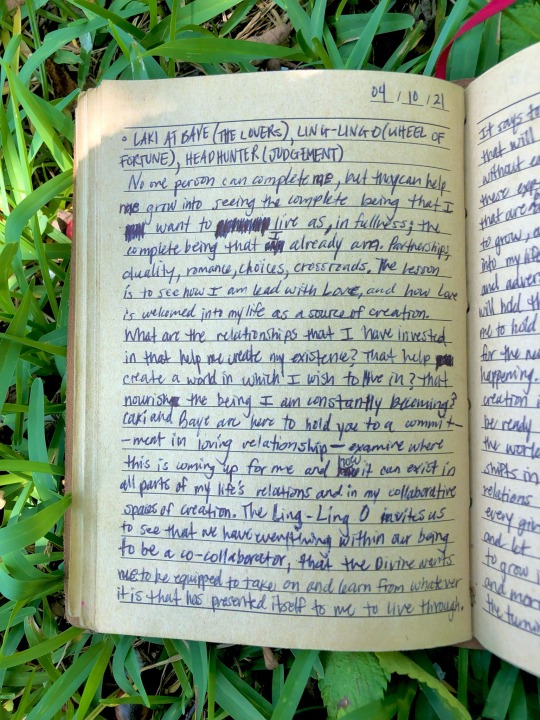 04/10/21
• LAKI AT BAYE (THE LOVERS), LING-LING O (WHEEL OF
FORTUNE), HEADHUNTER (JUDGEMENT)
No one person can complete me, but they can help
me grow into seeing the complete being that I
want to live as, in fullness; the
complete being that I already am. Partnerships,
duality, romance, choices, crossroads. The lesson
is to see how I am lead with Love, and how Love
is welcomed into my life as a source of creation.
What are the relationships that I have invested
in that help me create my existence? That help
create a world in which I wish to live in? That
nourish the being I am constantly becoming?
Laki and Baye are here to hold you to a commit-
-ment in loving relationship — examine where
this is coming up for me and how it can exist in
all parts of my life's relations and in my collaborative
spaces of creation. The Ling-Ling O invites us
to see that we have everything within our being
to be a co-collaborator, that the Divine wants
me to be equipped to take on and learn from whatever
it is that has presented itself to me to live through.
It says to
that will
without
these
that are
to grow, a
into my life
and
will hold th
me to hold
for the
happening.
creation i
be ready
the world
shifts in
relations
every
and let
to grow i
and more
the